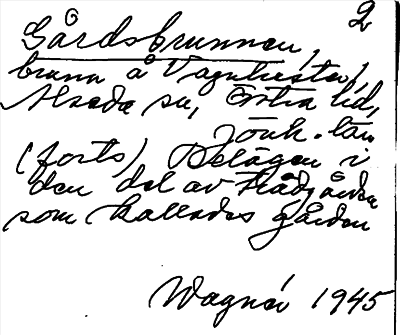 2
Gårdsbrunnen,
brunn å Vagnhester,
Alseda sn, Östra hd,
Jönk. län
(forts) Belägen i
den del av trädgården
som kallades gården
Wagnér 1945